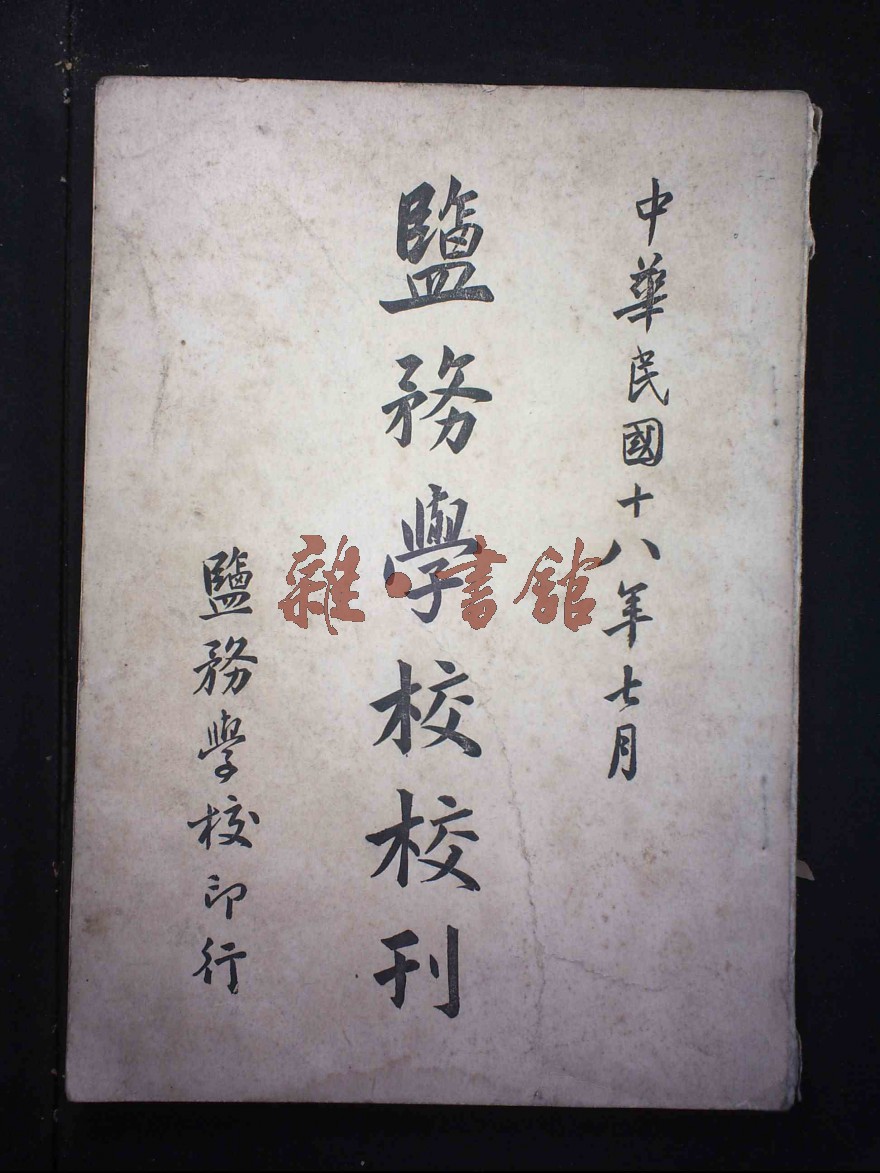 中華民國十八年七月
鹽務學校校刊
鹽務學校印行
雜·書館